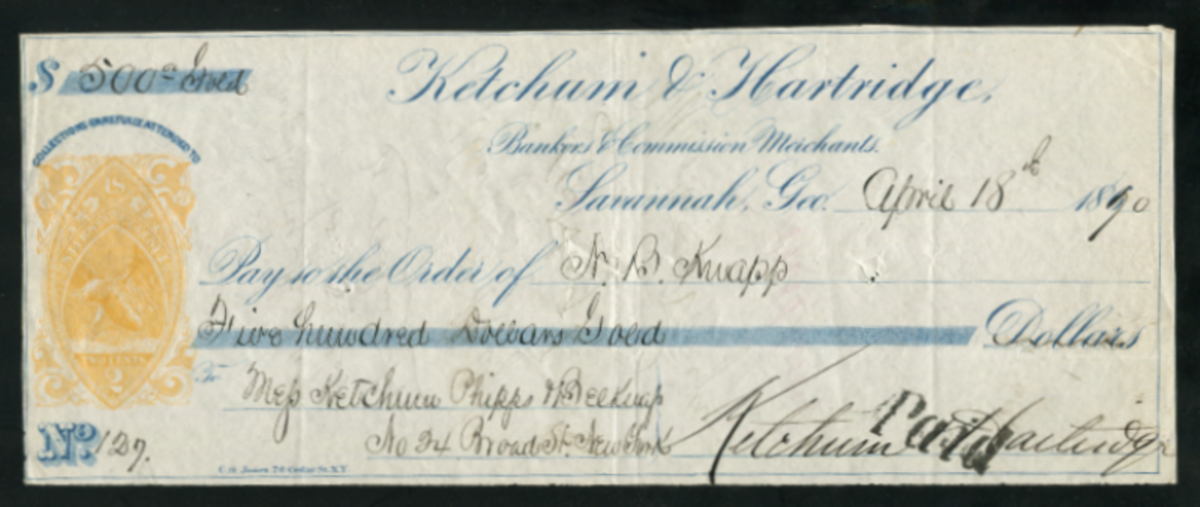 $ 500 00 Gold
Ketchum & Hartridge,
Bankers & Commission Merchants.
COLLECTIONS CAREFULLY ATTENDED TO
Savannah, Geo. April 18th 1870
Pay to the Order of N. B. Knapp
Five hundred Dollars Gold Dollars
To Mess Ketchum Phipps & Belknap
No 24 Broad St. New York
Ketchum & Hartridge
Paid
TWO CENTS
2
No 127.